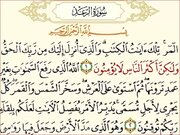 سورة الرعد
بسم الله الرحمن الرحيم
المر تلك ءايت الكتب والذى أنزل إليك من ربك الحق
ولكن أكثر الناس لا يؤمنون ١ الله الذى رفع السموت بغير
عمد ترونها ثم استوى على العرش وسخر الشمس والقمر كل
يجرى لأجل مسمى يدبر الأمر يفصل الءايت لعلكم بلقاء
ربكم توقنون ٢ وهو الذى مد الأرض وجعل فيها